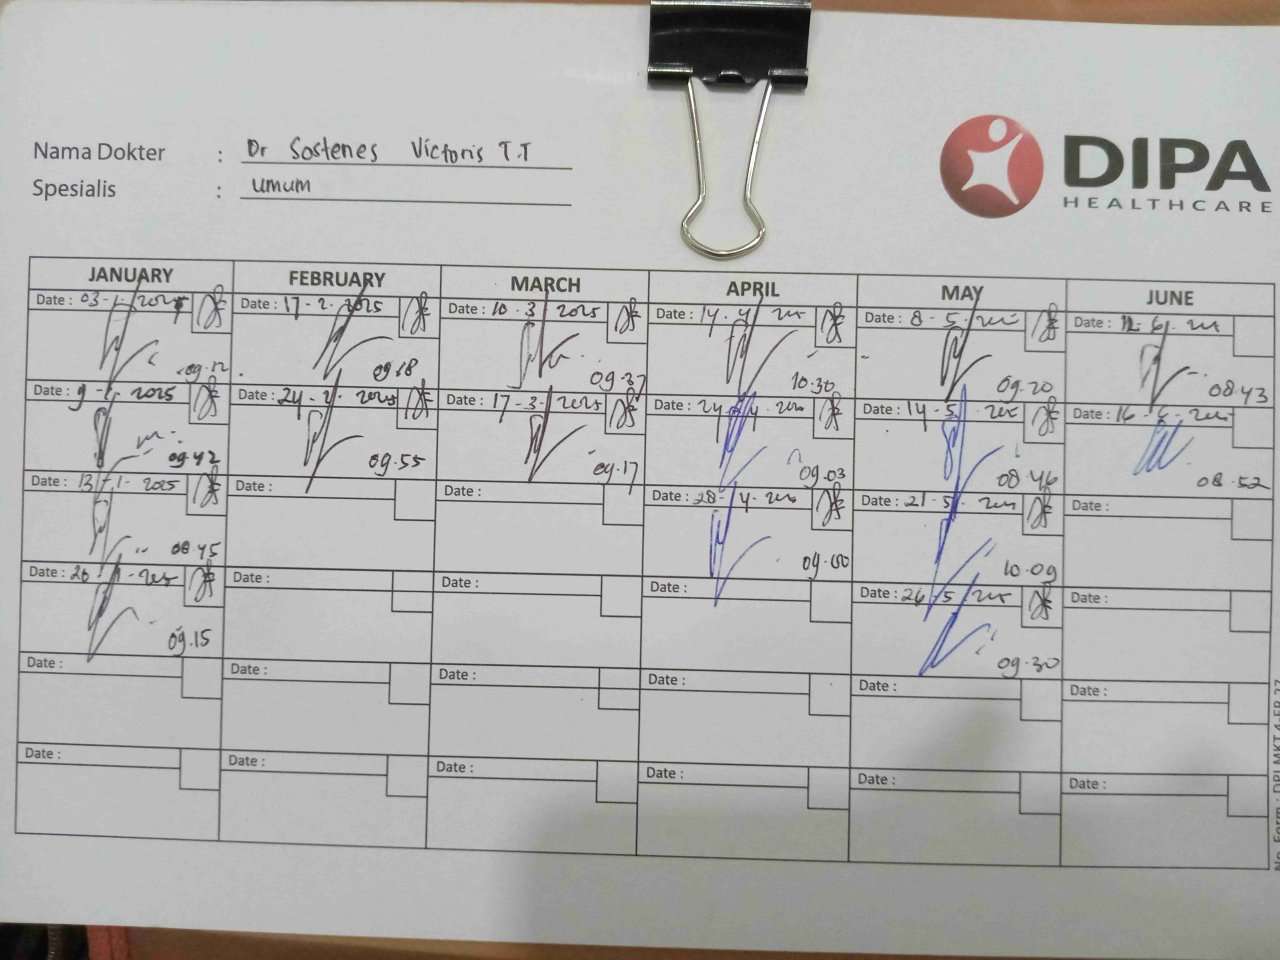 Nama Dokter : Dr Sostenes Victoris T.T
Spesialis : umum
DIPA
HEALTHCARE
JANUARY FEBRUARY MARCH APRIL MAY JUNE
Date : 03-1-2025 Date : 17-2-2025 Date : 10-3 2025 Date : 14-4 Date : 8-5- Date :
09.12 09.18 09.37 10.30 09.20 08.43
Date : 9- 2025 Date : 24-2-2025 Date : 17-3-2025 Date : 24-4 Date : 14-5 Date : 16-6-
09.42 09.55 09.17 09.03 08.46 08.52
Date : 13-1-2025 Date : Date : Date : 28-4- Date : 21-5- Date :
08.45 09.00 10.09
Date : 20- Date : Date : Date : Date : 26-5 Date :
09.15 09.30
Date : Date : Date : Date : Date : Date :
Date : Date : Date : Date : Date : Date :